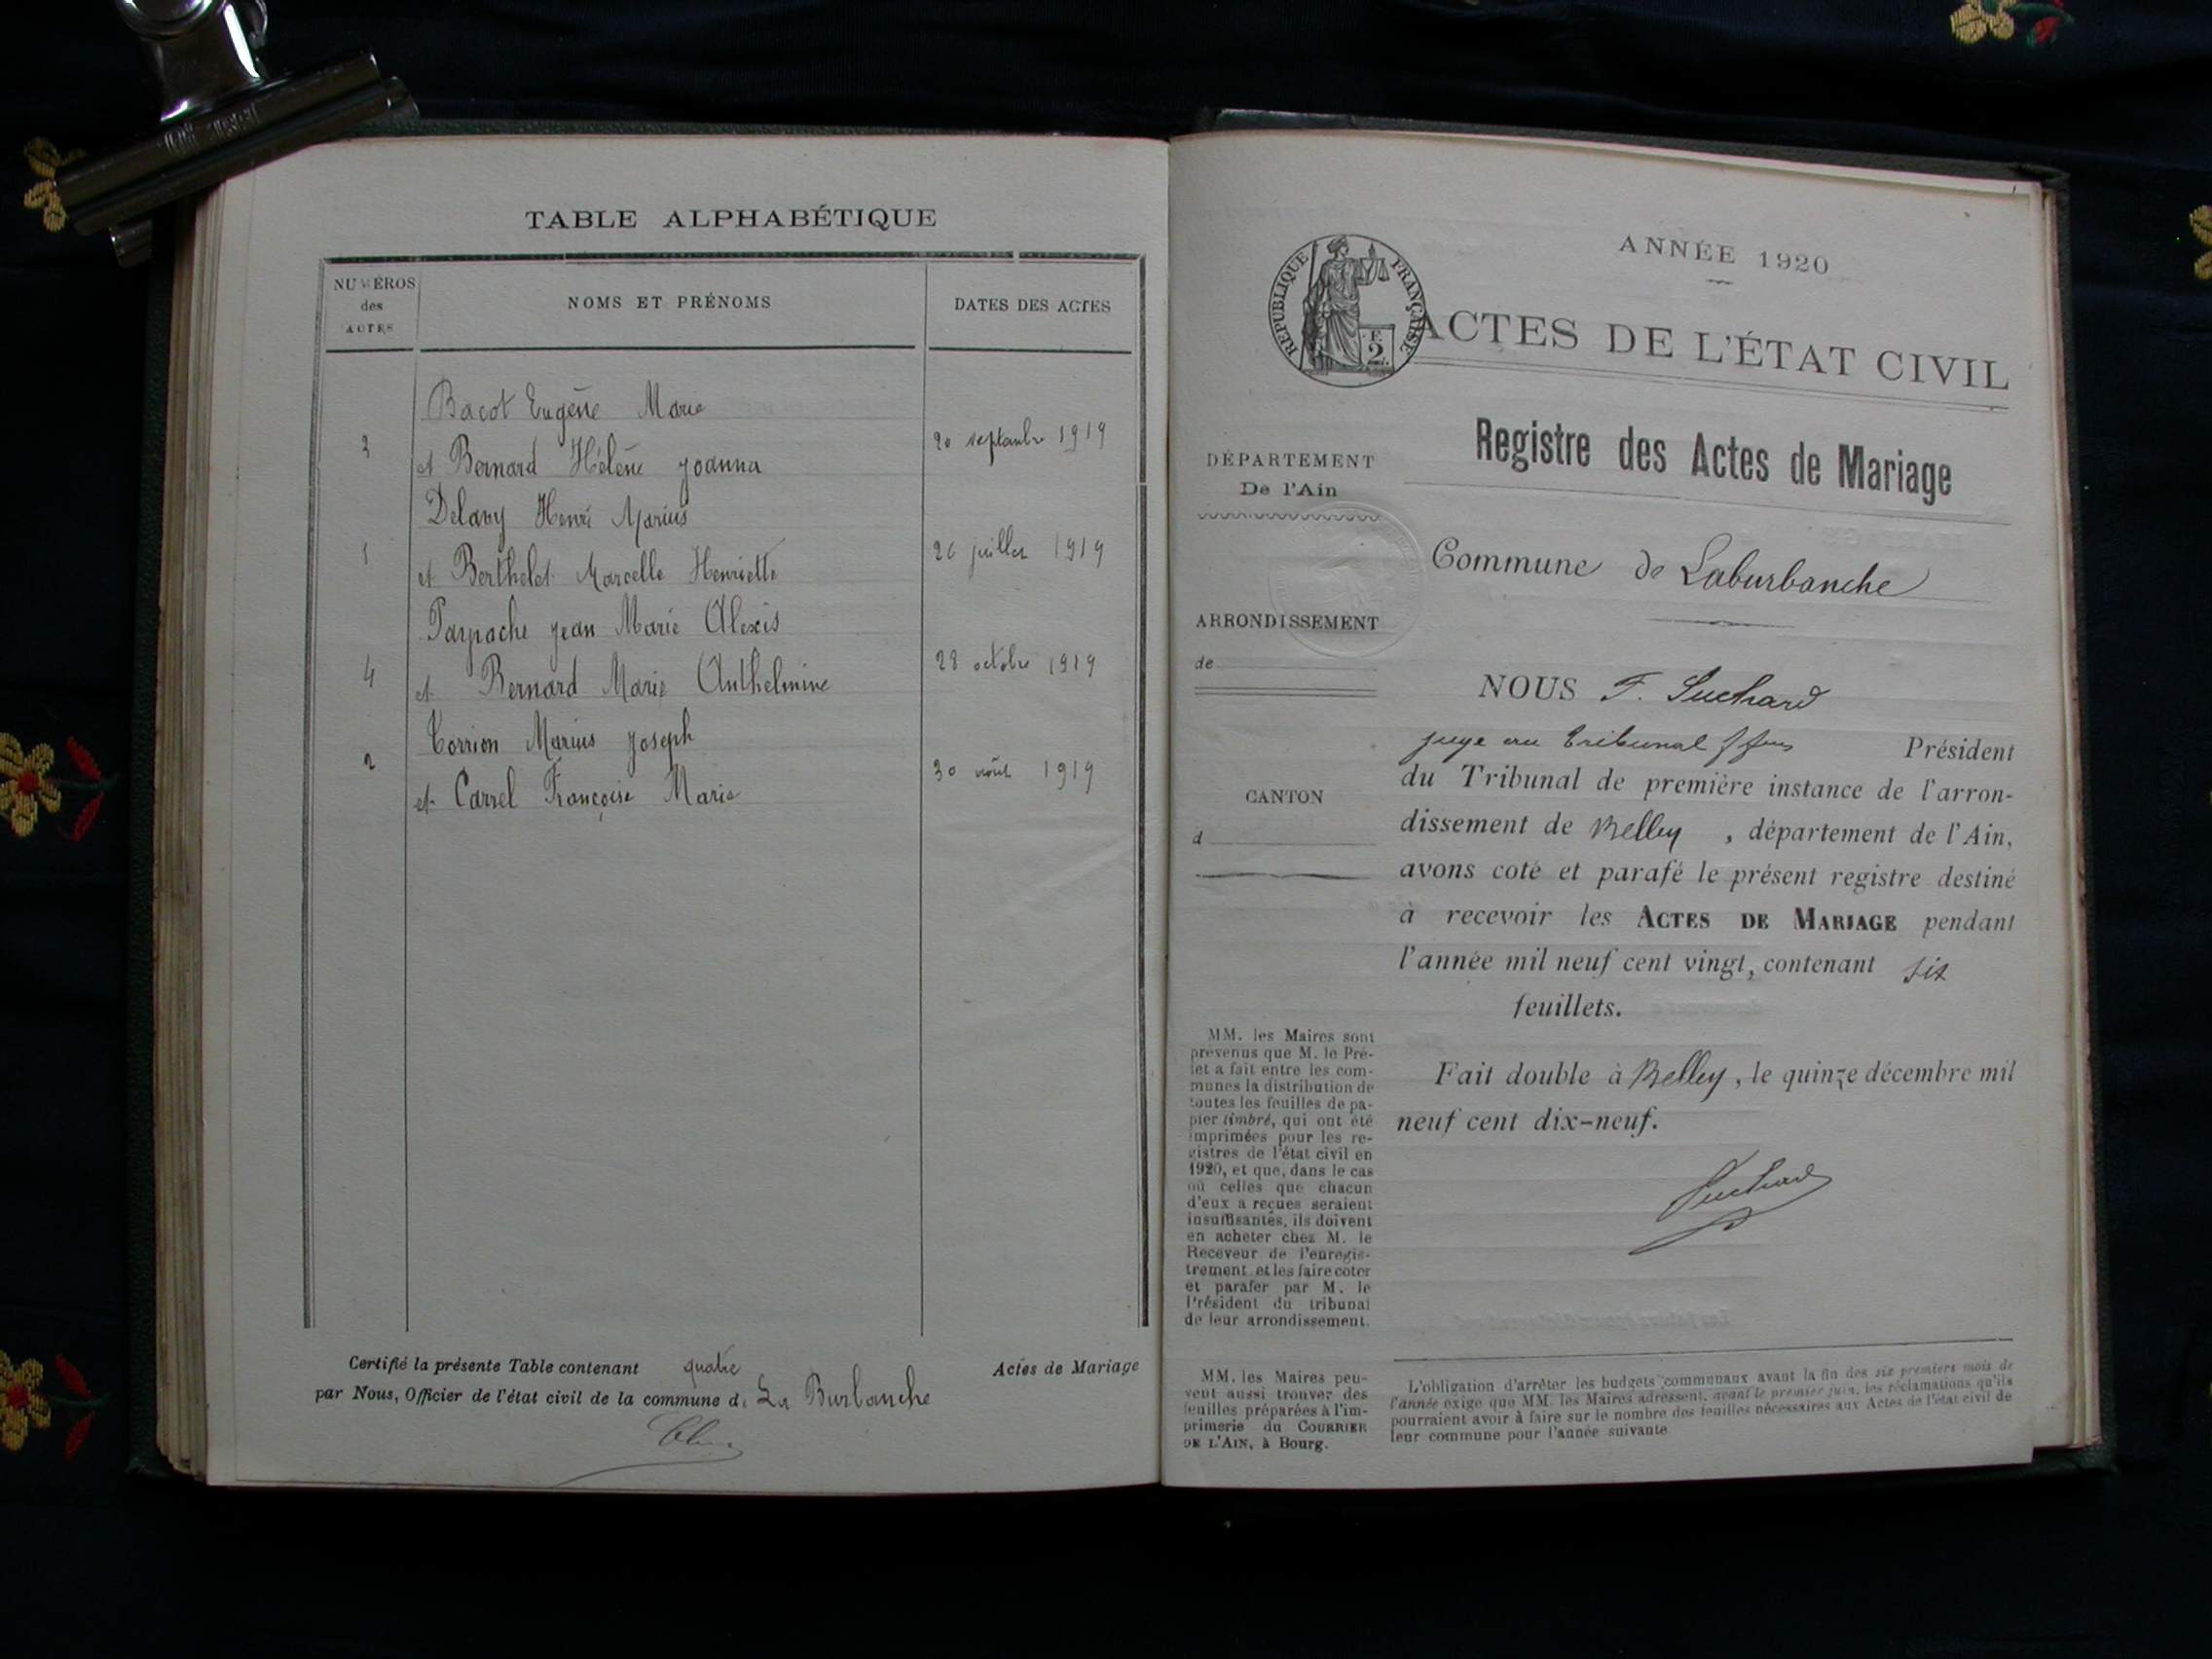 TABLE ALPHABÉTIQUE
NUMÉROS
des
ACTES
NOMS ET PRÉNOMS
DATES DES ACTES
Bacot Eugène Marie
3
20 septembre 1919
et Bernard Hélène Joanna
Henri Marius
1
26 juillet 1919
et Berthelet Marcelle Henriette
Jean Marie Alexis
4
28 octobre 1919
et Bernard Marie Anthelmine
Marius Joseph
2
30 août 1919
et Carrel Françoise Marie
Certifié la présente Table contenant quatre Actes de Mariage
par Nous, Officier de l'état civil de la commune d. La Burbanche
ANNÉE 1920
RÉPUBLIQUE FRANÇAISE
2
ACTES DE L'ÉTAT CIVIL
Registre des Actes de Mariage
DÉPARTEMENT
De l'Ain
Commune de Laburbanche
ARRONDISSEMENT
de
CANTON
d
NOUS F. Suchard
juge au Tribunal Président
du Tribunal de première instance de l'arron-
dissement de Belley , département de l'Ain,
avons coté et parafé le présent registre destiné
à recevoir les ACTES DE MARIAGE pendant
l'année mil neuf cent vingt, contenant six
feuillets.
Fait double à Belley, le quinze décembre mil
neuf cent dix-neuf.
Suchard
MM. les Maires sont
prévenus que M. le Pré-
fet a fait entre les com-
munes la distribution de
toutes les feuilles de pa-
pier timbré, qui ont été
imprimées pour les re-
gistres de l'état civil en
1920, et que, dans le cas
où celles que chacun
d'eux a reçues seraient
insuffisantes, ils doivent
en acheter chez M. le
Receveur de l'enregis-
trement et les faire coter
et parafer par M. le
Président du tribunal
de leur arrondissement.
MM. les Maires peu-
vent aussi trouver des
feuilles préparées à l'im-
primerie du COURRIER
DE L'AIN, à Bourg.
L'obligation d'arrêter les budgets communaux avant la fin des six premiers mois de
l'année exige que MM. les Maires adressent, avant le premier juin, les réclamations qu'ils
pourraient avoir à faire sur le nombre des feuilles nécessaires aux Actes de l'état civil de
leur commune pour l'année suivante